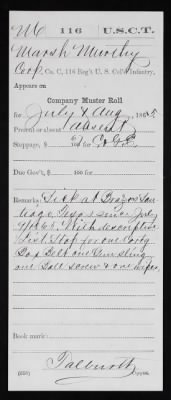 M 116 U.S.C.T.
Marsh Murthy
Corp., Co. C, 116 Reg't U. S. Col'd Infantry.
Appears on
Company Muster Roll
for July & Aug, 1865.
Present or absent Absent
Stoppage, $ 100 for C & G E
Due Gov't, $ 100 for
Remarks: Sick at Brazos San
tiago Texas since July
1865. With descriptive
List. Stop for one Carty
Box Belt one Gunsling
one Ball Screw & one wiper.
Book mark:
Talbott
(358) Copyist.